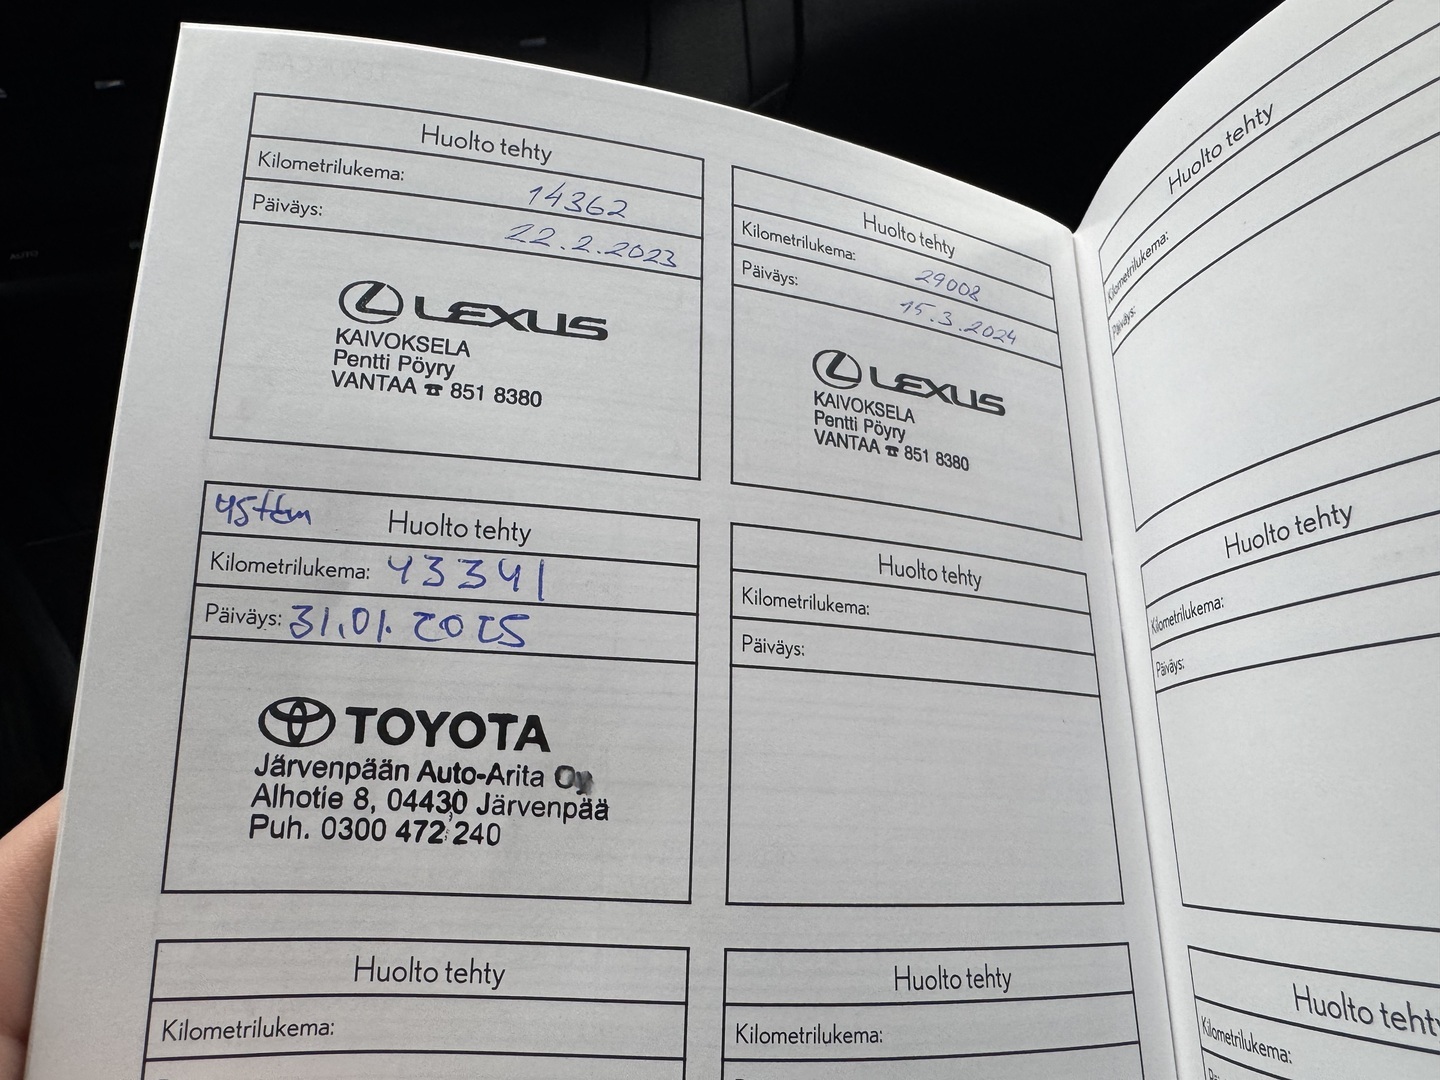 Huolto tehty
Kilometrilukema: 14362
Päiväys: 22.2.2023
LEXUS
KAIVOKSELA
Pentti Pöyry
VANTAA ☎ 851 8380
Huolto tehty
Kilometrilukema: 29008
Päiväys: 15.3.2024
LEXUS
KAIVOKSELA
Pentti Pöyry
VANTAA ☎ 851 8380
45tkm Huolto tehty
Kilometrilukema: 43341
Päiväys: 31.01.2025
TOYOTA
Järvenpään Auto-Arita Oy
Alhotie 8, 04430 Järvenpää
Puh. 0300 472 240
Huolto tehty
Kilometrilukema:
Päiväys:
Huolto tehty
Kilometrilukema:
Huolto tehty
Kilometrilukema:
Huolto tehty
Kilometrilukema:
Päiväys:
Huolto tehty
Kilometrilukema:
Päiväys:
Huolto tehty
Kilometrilukema:
AUTO